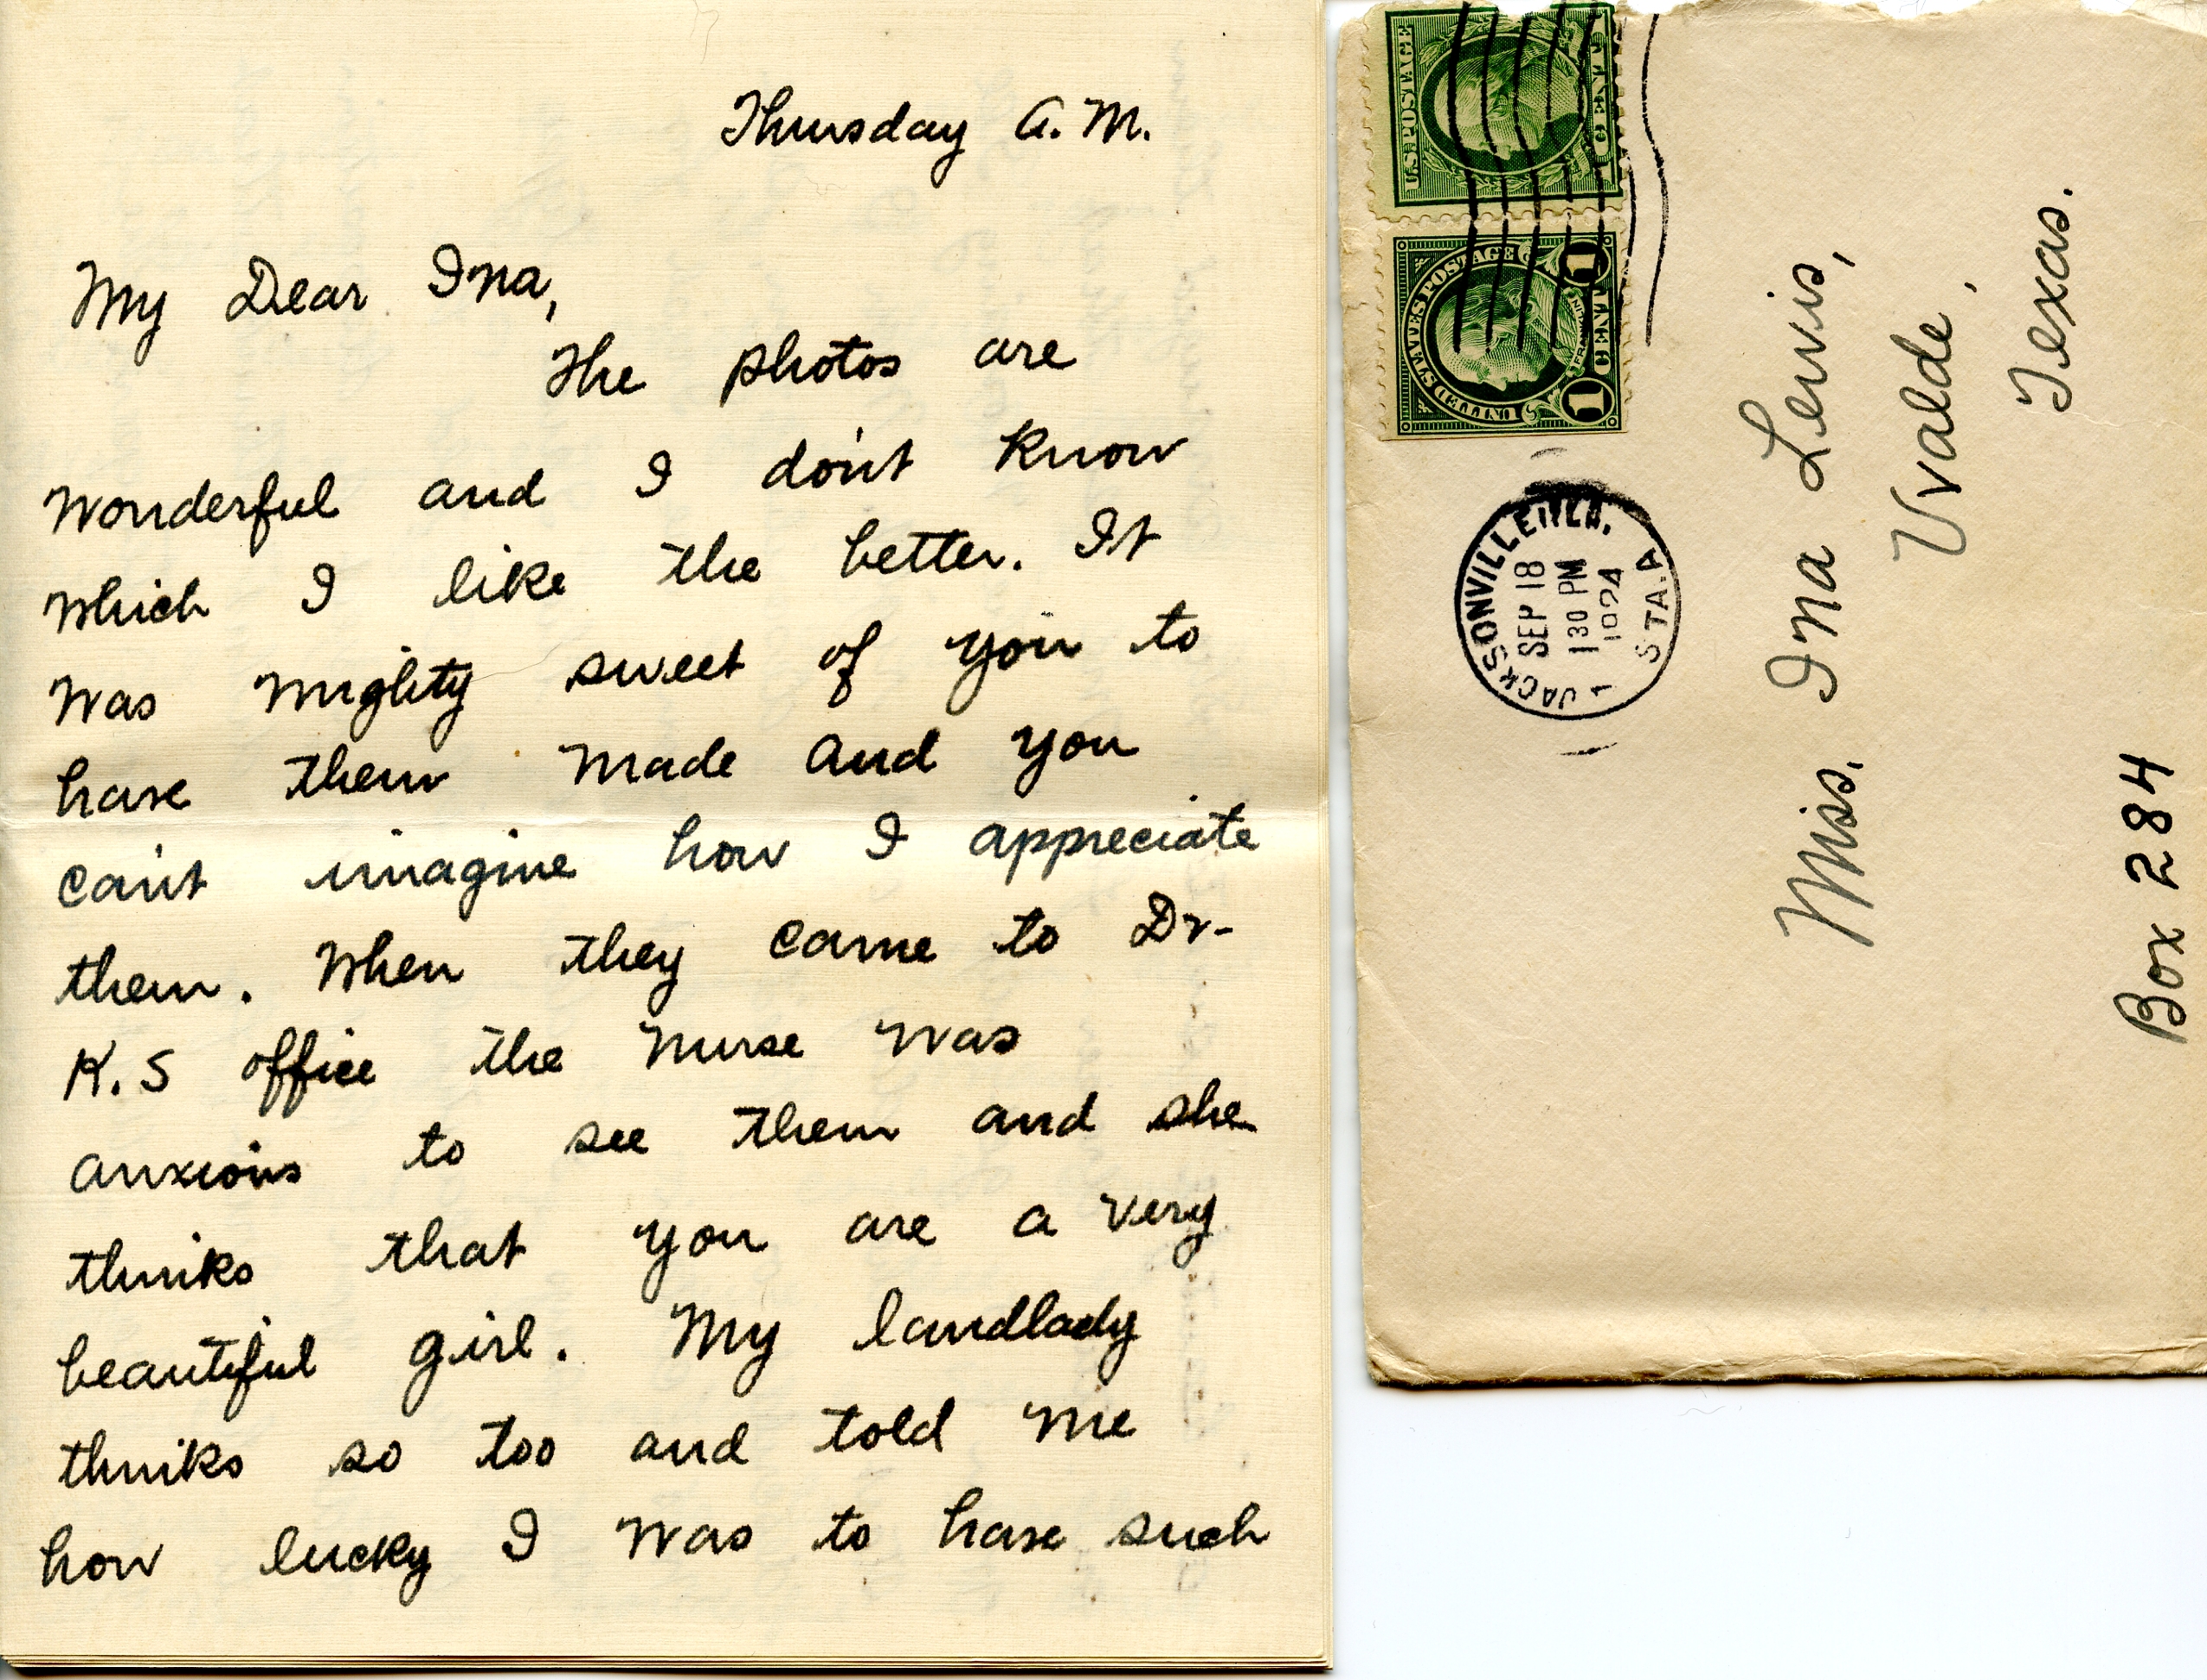 Thursday A.M.
My Dear Ina,
The photos are
wonderful and I don't know
which I like the better. It
was mighty sweet of you to
have them made and you
can't imagine how I appreciate
them. When they came to Dr.
K.S office the nurse was
anxious to see them and she
thinks that you are a very
beautiful girl. My landlady
thinks so too and told me
how lucky I was to have such
U.S. POSTAGE
1 CENT 1
UNITED STATES POSTAGE
FRANKLIN
1 CENT 1
JACKSONVILLE, FLA.
SEP 18
1 30 PM
1924
STA. A
1
Miss. Ina Lewis,
Uvalde,
Texas.
Box 284